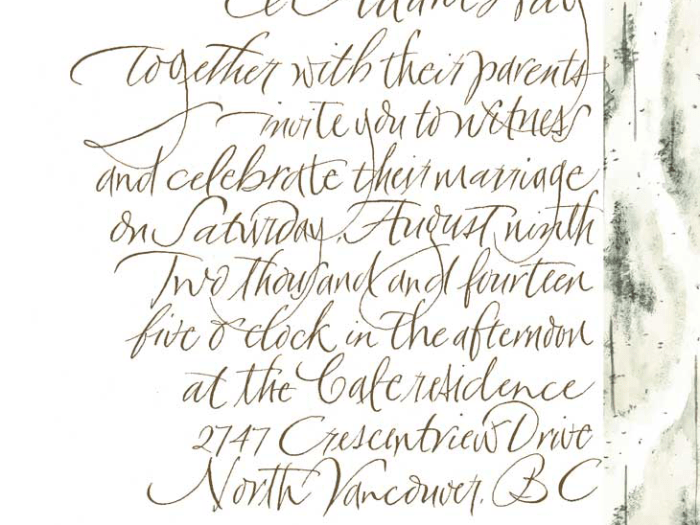 & Adams Fay
together with their parents
invite you to witness
and celebrate their marriage
on Saturday, August ninth
Two thousand and fourteen
five o'clock in the afternoon
at the Cale residence
2747 Crescentview Drive
North Vancouver, BC